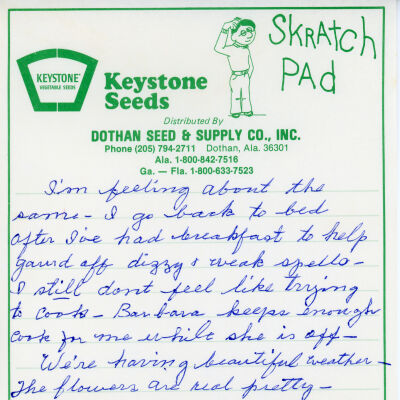 SKRAtCh
PAd
KEYSTONE
VEGETABLE SEEDS
Keystone
Seeds
Distributed By
DOTHAN SEED & SUPPLY CO., INC.
Phone (205) 794-2711 Dothan, Ala. 36301
Ala. 1-800-842-7516
Ga. — Fla. 1-800-633-7523
I'm feeling about the
same - I go back to bed
after I've had breakfast to help
gaurd off dizzy & weak spells -
I still dont feel like trying
to cook - Barbara keeps enough
cook for me while she is off -
We're having beautiful weather -
The flowers are real pretty -